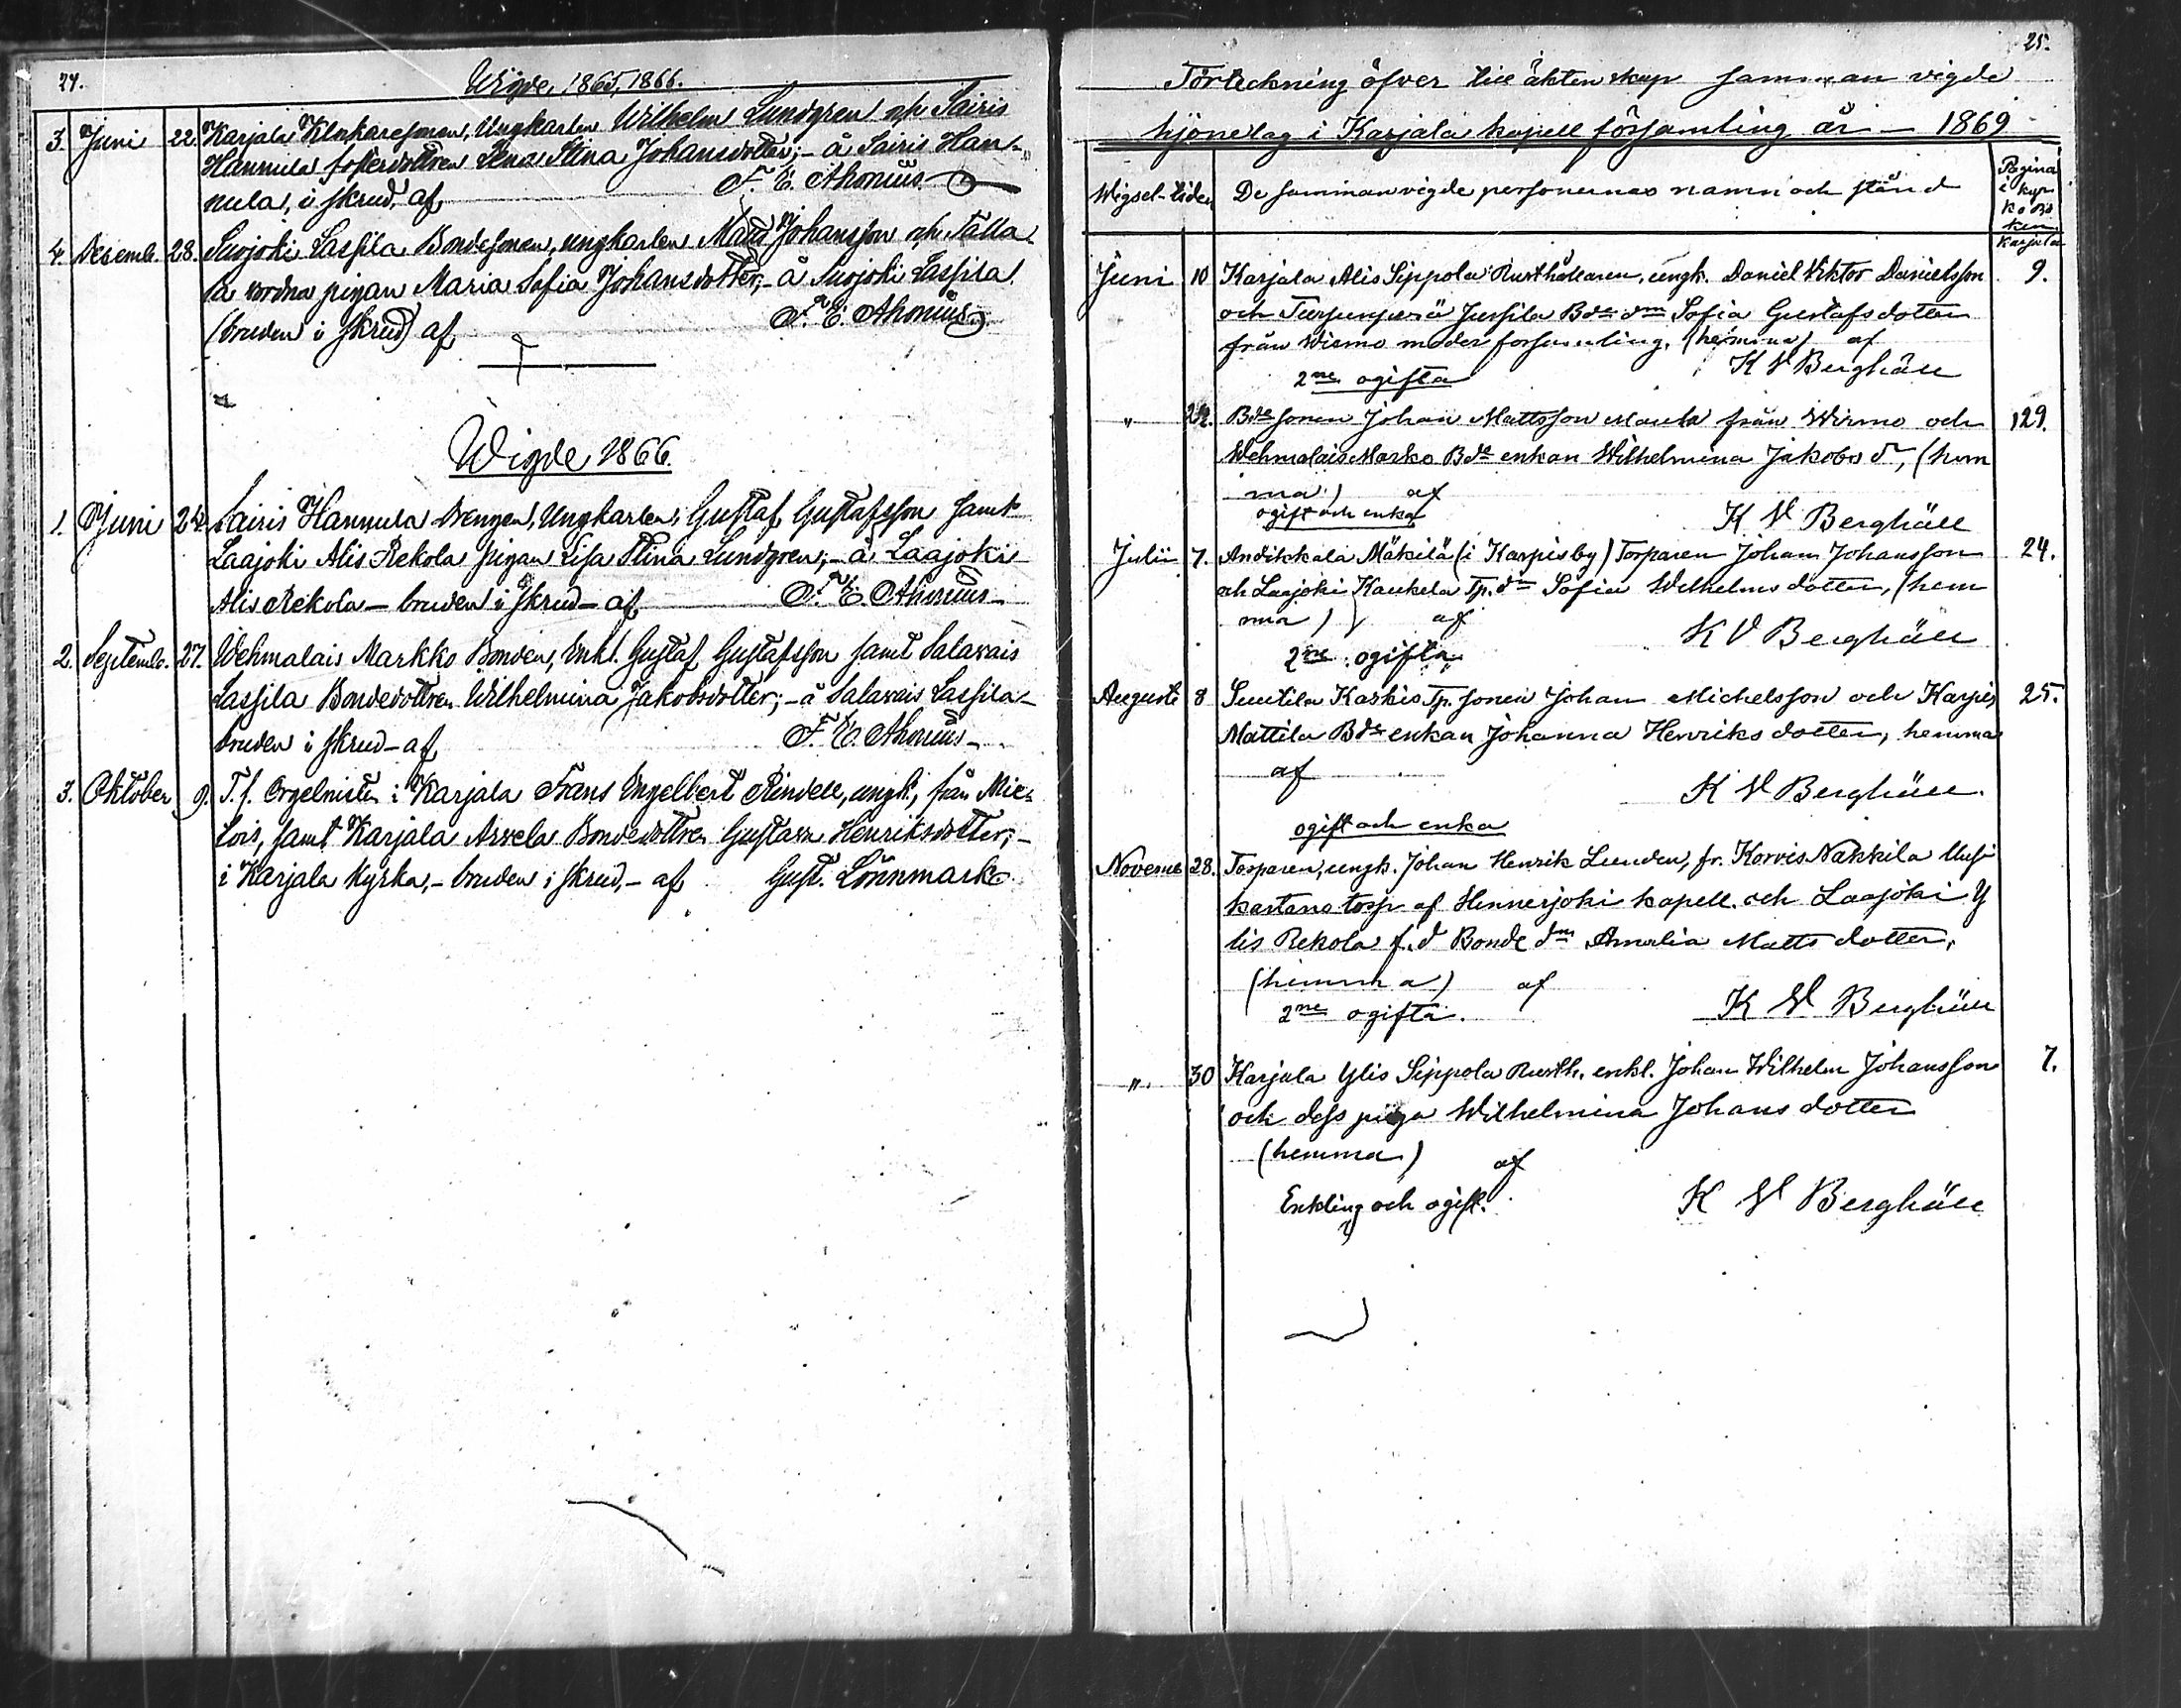 24.
Wigde, 1865, 1866.
3. Juni 22. Karjala Klockaresonen, Ungkarlen Wilhelm Lundgren och Sairis
Hannula dotren Lena Stina Johansdotter; - å Sairis Han-
nula, i skrud, af F. E. Ahonius
4. Decemb. 28. Suojoki Lassila Bondesonen, ungkarlen Matts Johansson och
pigan Maria Sofia Johansdotter; - å Suojoki Lassila
(bruden i skrud) af F. E. Ahonius
Wigde 1866.
1. Juni 24. Sairis Hannula Drengen, Ungkarlen, Gustaf Gustafsson samt
Laajoki Alis Rekola pigan Lisa Stina Lundgren; - å Laajoki
Alis Rekola - bruden i skrud - af F. E. Ahonius
2. Septemb. 27. Wehmalais Markko Bonden, Enkl. Gustaf Gustafsson samt Salavais
Lassila Bondedottren Wilhelmina Jakobsdotter; - å Salavais Lassila -
bruden i skrud - af F. E. Ahonius
3. Oktober 9. T. f. Orgelnisten i Karjala Frans Engelbert Rindell, ungk., från Mie-
tois, samt Karjala Arvela Bondedottren Gustava Henriksdotter; -
i Karjala Kyrka, - bruden i skrud, - af Gust. Lönnmark
25.
Förteckning öfver till äktenskap samman vigde
hjonelag i Karjala kapell församling år - 1869
Wigsel-tiden De sammanvigde personernas namn och stånd Pagina
i kyr
ko Bo
ken
Karjala
Juni 10 Karjala Alis Sippola Rusthållaren, ungk. Daniel Viktor Danielsson 9.
och Turpunperä Jussila Bde dm Sofia Gustafsdotter
från Wirmo moderforsamling, (hemma) af
K W Berghäll
2ne ogifta
" 24. Bde sonen Johan Mattsson Maula från Wirmo och 129.
Wehmalais Marko Bde enkan Wilhelmina Jakobs dr, (hem
ma) af
ogift och enka K W Berghäll
Julii 7. Andikkala Mäkilä (i Karpis by) Torparen Johan Johansson 24.
och Laajoki Kaukela Tp. dn Sofia Wilhelms dotter, (hem
ma) af
K W Berghäll
2ne ogifta
Augusti 8 Suutila Kaskis Tp. sonen Johan Michelsson och Karpis 25.
Mattila Bde enkan Johanna Henriks dotter, hemma
af
K W Berghäll.
ogift och enka
Novemb 28. Torparen, ungk. Johan Henrik Lunden, fr. Korvis Nakkila Uusi
kartano torp af Hinnerjoki kapell. och Laajoki Y
lis Rekola f. d Bonde dm Amalia Matts dotter,
(hemma) af
K W Berghäll
2ne ogifta.
". 30 Karjala Ylis Sippola Rusth. enkl. Johan Wilhelm Johansson 7.
och dess piga Wilhelmina Johans dotter
(hemma) af
Enkling och ogift. K W Berghäll